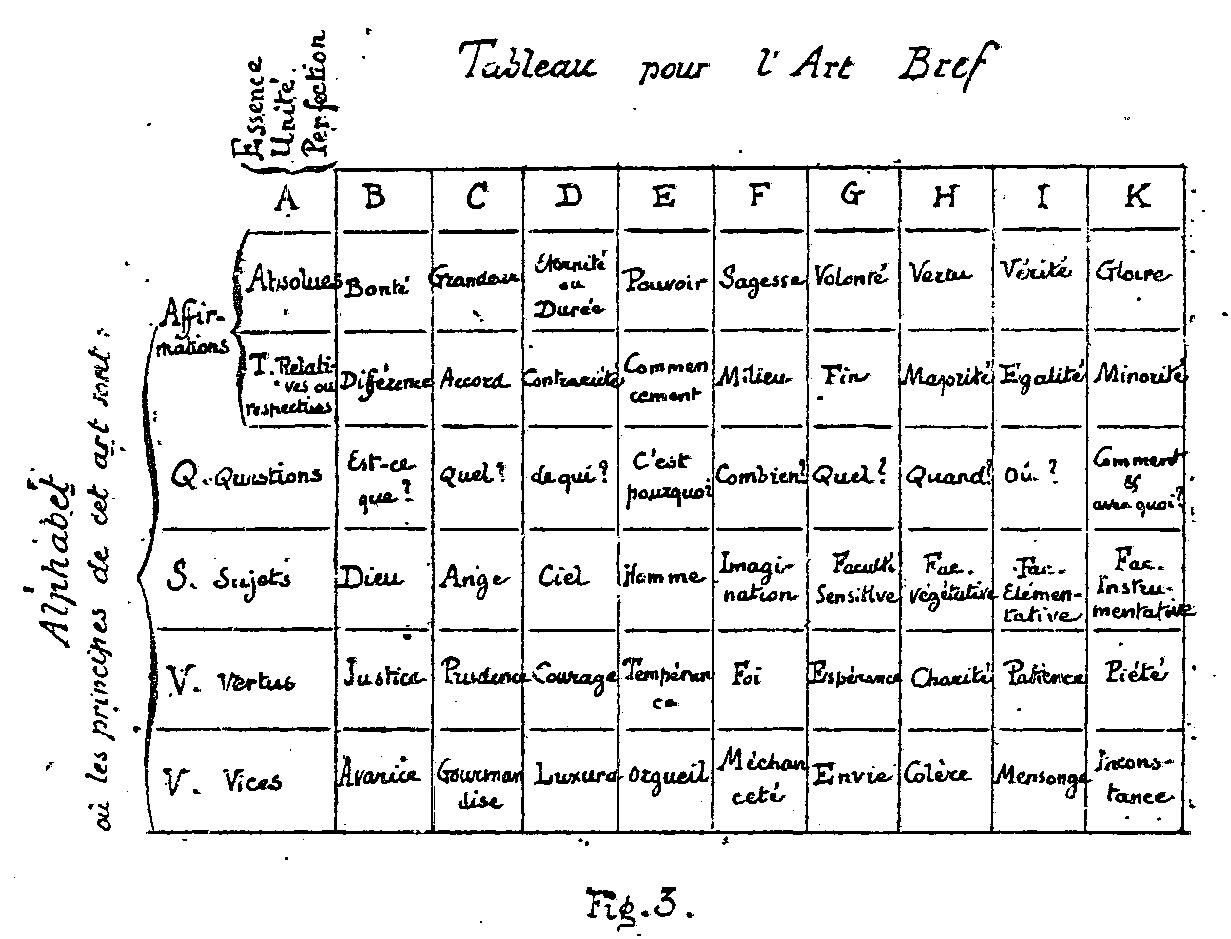 Tableau pour l'Art Bref
Essence
Unité
Perfection
A B C D E F G H I K
Alphabet
où les principes de cet art sont :
Affir-
mations
Absolues Bonté Grandeur Eternité ou Durée Pouvoir Sagesse Volonté Vertu Vérité Gloire
T. Relati-
ves ou
respectives Différence Accord Contrariété Commen cement Milieu Fin Majorité Egalité Minorité
Q. Questions Est-ce que ? Quel ? de qui ? C'est pourquoi Combien? Quel ? Quand? Où ? Comment & avec quoi?
S. Sujets Dieu Ange Ciel Homme Imagi- nation Faculté Sensitive Fac. végétative Fac. Elémen- tative Fac. Instru- mentative
V. Vertus Justice Prudence Courage Tempéran ce Foi Espérance Charité Patience Piété
V. Vices Avarice Gourman dise Luxure Orgueil Méchan ceté Envie Colère Mensonge Incons- tance
Fig. 3.